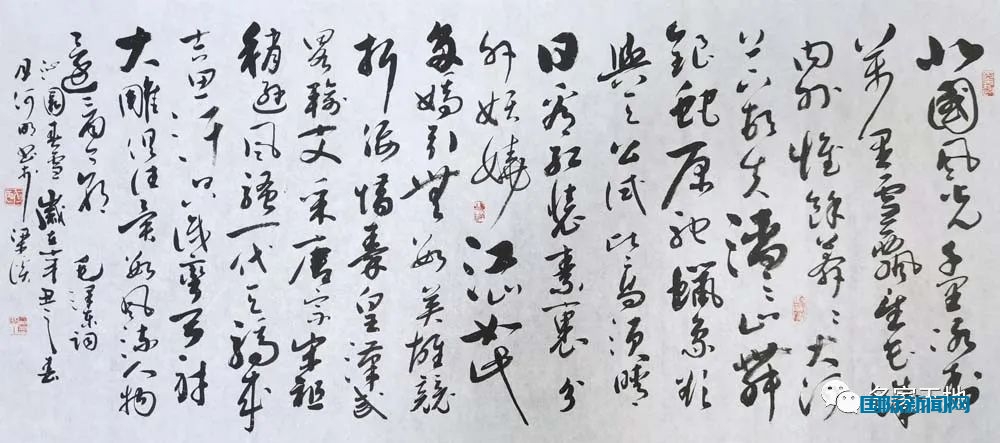 北國風光千里冰封
萬里雪飄望長城
內外惟餘莽莽大河
上下頓失滔滔山舞
銀蛇原馳蠟象欲
與天公試比高須晴
日看紅裝素裹分
外妖嬈江山如此
多嬌引無數英雄競
折腰惜秦皇漢武
略輸文采唐宗宋祖
稍遜風騷一代天驕成
吉思汗只識彎弓射
大雕俱往矣數風流人物
還看今朝毛澤東詞
沁園春雪歲在辛丑之春
月河明書於梁溪
名家天地
国防新闻网